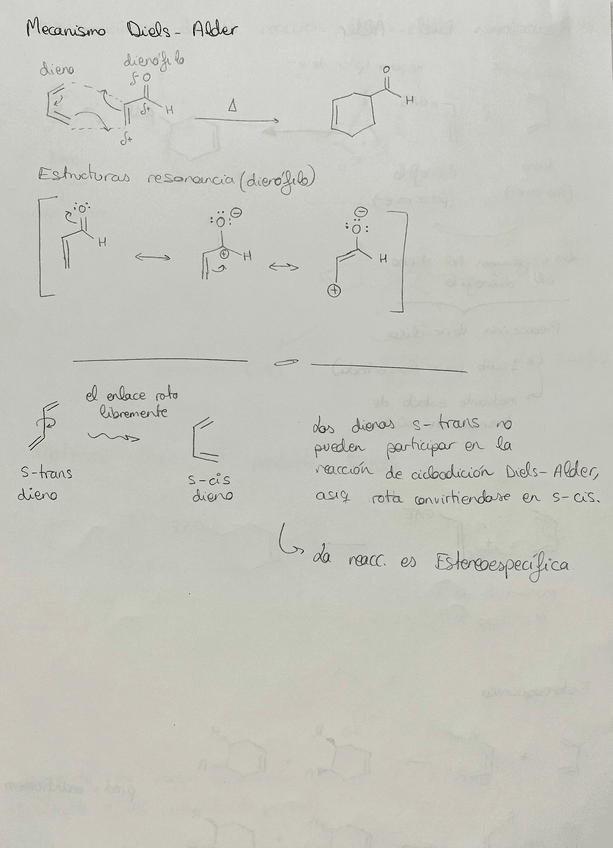 Mecanismo Diels-Alder
dieno
dienófilo
δ-
O
H
δ+
δ+
Δ
O
H
Estructuras resonancia (dienófilo)
:O:
H
⊖
:O:
⊕
H
⊖
:O:
H
⊕
el enlace rota
libremente
s-trans
dieno
s-cis
dieno
Los dienos s-trans no
pueden participar en la
reacción de cicloadición Diels-Alder,
así q rota convirtiendose en s-cis.
La reacc. es Estereoespecífica